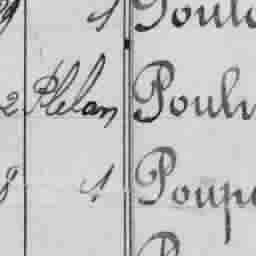 9 1 Poulo
2 Plelan Poulv
8 1 Poupe